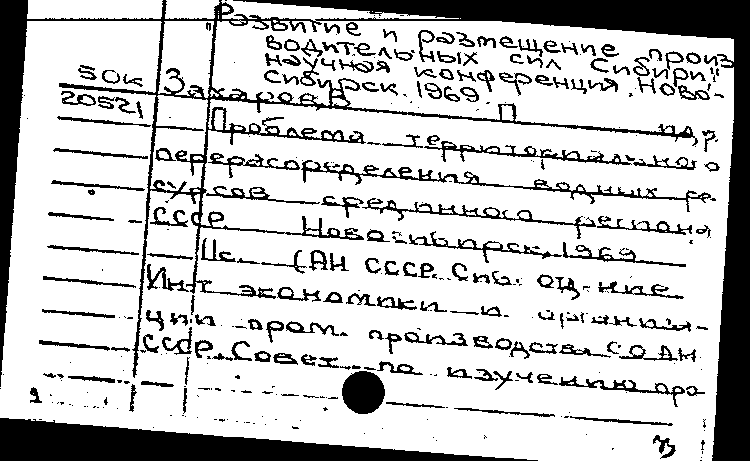 "Развитие и размещение произ
водительных сил Сибири",
научная конференция. Ново-
сибирск. 1969.
50к Захаров, В. П. и др.
20521
Проблема территориального
перераспределения водных ре
сурсов срединного региона
СССР. Новосибирск, 1969
11с. (АН СССР. Сиб. отд-ние.
Ин-т экономики и организа-
ции пром. производства СО АН
СССР. Совет по изучению про